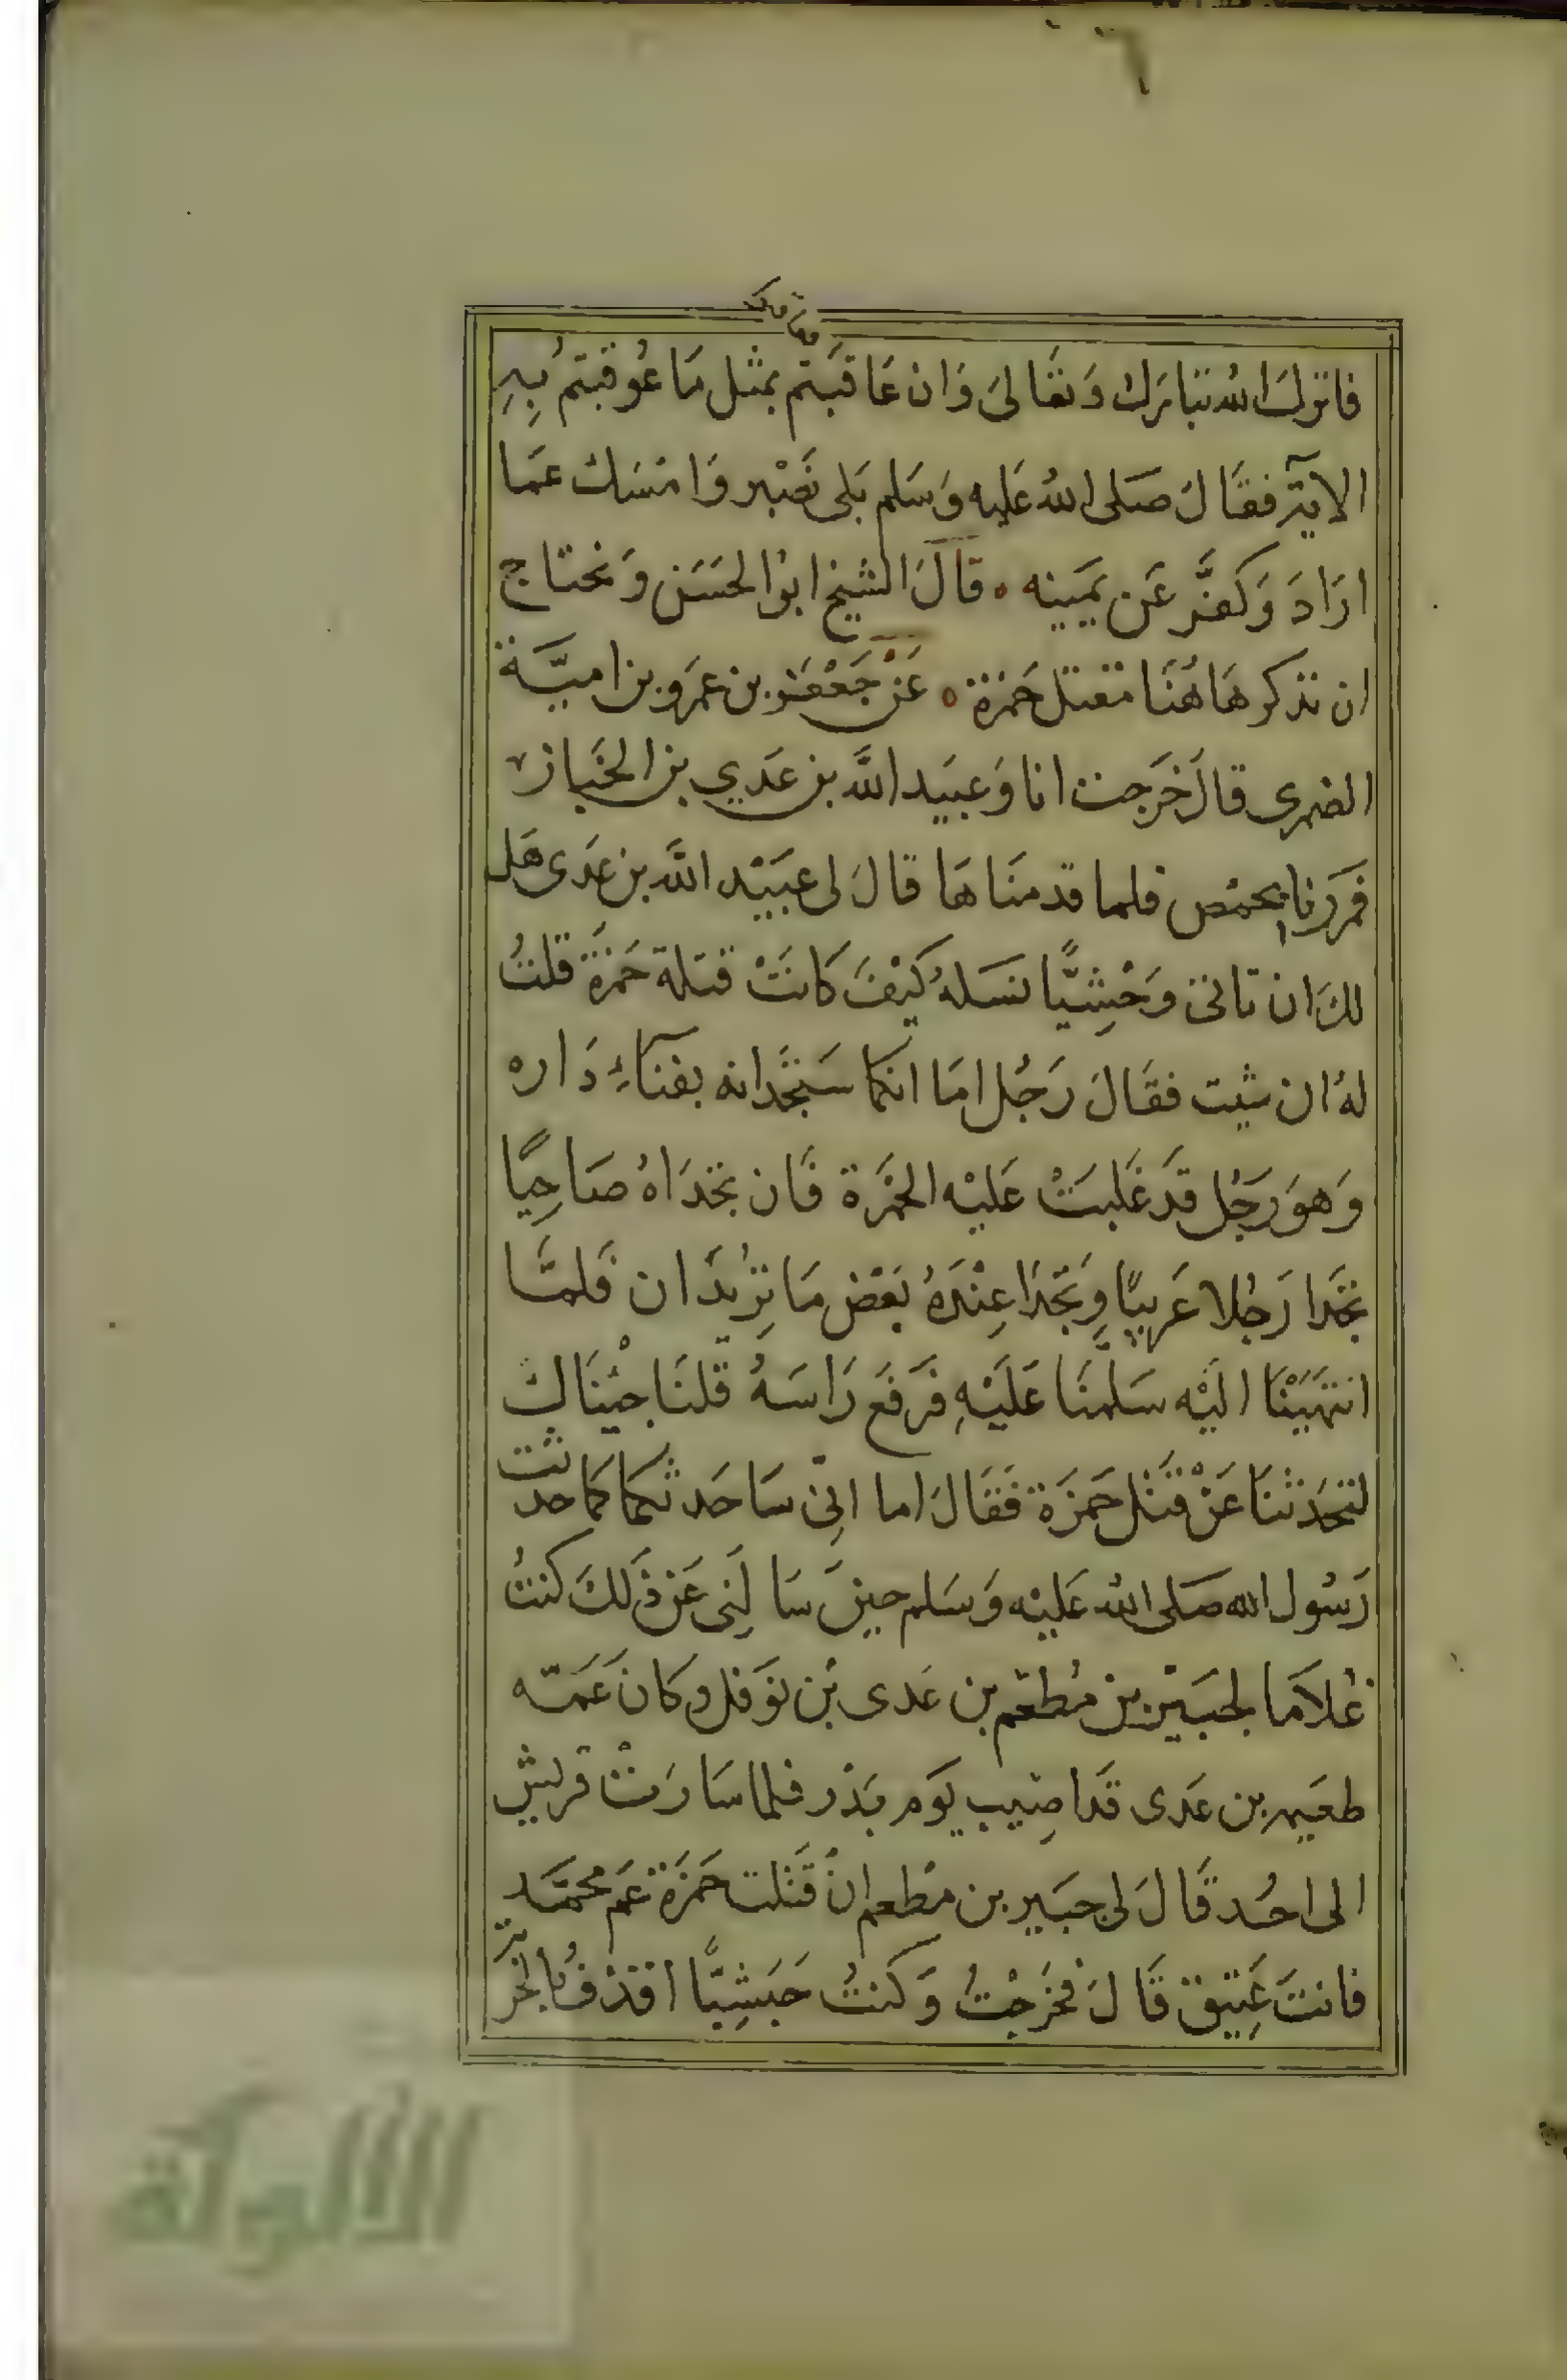 ٦
فعاقبوا
فانزلَ اللهُ تبَارَك وَتعَالىَ وَان عَاقبَتم بمثل مَا عُوقبتمُ بِهِ
الايَة فقَالَ صَلى اللهُ عَليه وَسَلم بَلى نَصْبر وَامْسَك عَما
ارَادَ وَكفَّر عَن يَمينه ۰ قالَ الشيخ ابوُ الحسَن وَنحتاج
ان نذكر هَاهُنَا مقتل حَمزة ۰ عَنْ جَعْفَر بن عمَرو بن اميَّة
الضمرى قالَ خَرَجت انا وَعبَيد اللَّه بن عَدي بن الخيَار
فمَررنا بحمْص فلما قدمنَاهَا قالَ لى عبَيْد اللَّه بن عَدَى هَل
لكَ ان تاتىَ وَحْشِيًّا نسَلهُ كَيْفَ كانَتْ قتلة حَمزَة قلتُ
لهُ ان شيت فقَالَ رَجُل امَا انكما سَتجدَانه بفنَاءِ دَاره
وَهوَ رَجُل قَد غَلبَتْ عَليْه الخمَرة فَان تجدَاهُ صَاحِيًا
تجَدا رَجُلا عَربيًا وَتجدَا عِنْدَهُ بَعْض مَا تِرُيدَان فَلمَّا
انتهَيْنَا اليْه سَلمنَا عَلَيْهِ فَرَفعَ رَاسَهُ قُلنَا جيْنَاك
لتحدَثنَا عَنْ قتْل حَمزَة فقَالَ اما انِىّ سَاحَدثكما كما حدثت
رَسُول الله صَلى اللهُ عَليْه وَسَلم حينَ سَالَنِى عَن ذَلكَ كنتُ
غُلامَا لجبَيْر بن مُطعم بن عَدى بْن نوَفل وكانَ عَمّه
طعَيمه بن عَدى قَد اصِيب يَوم بَدْر فلما سَارَتْ قرَيش
الى احُد قَالَ لى جبَير بن مطعم انْ قَتلت حَمزَة عَم محمَّد
فانتَ عَتِيق قَالَ فخرَجْتُ وَكنتُ حَبَشِيًّا اقذفُ بالحَربَة
الألوكة